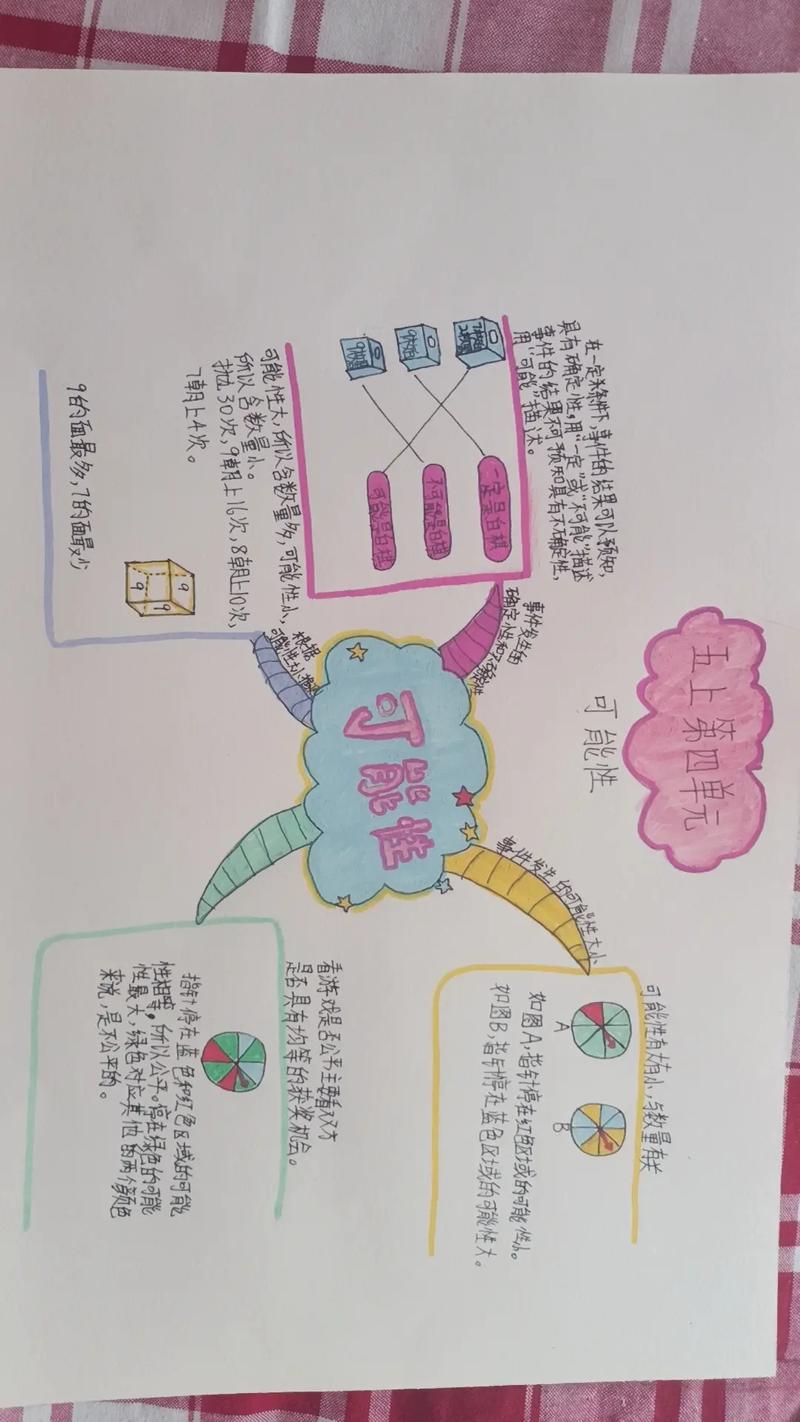 五上第四单元
可能性
可能性
事件发生的
确定性和不确定性
在一定条件下,事件的结果可以预知,
具有确定性,用“一定”或“不可能”描述
事件的结果不可预知具有不确定性,
用“可能”描述。
一定是白棋
不可能是白棋
可能是白棋
事件发生的可能性大小
可能性有大有小,与数量有关
A
B
如图A,指针停在红色区域的可能性小。
如图B,指针停在蓝色区域的可能性大。
根据
可能性大小推测
可能性大,所以含数量多,可能性小,
所以含数量小。
抛30次,9朝上16次,8朝上10次,
7朝上4次。
9
9
9
9的面最多,7的面最少
看游戏是否公平主要看双方
是否具有均等的获奖机会。
指针停在蓝色和红色区域的可能
性相等,所以公平。停在绿色的可能
性最大,绿色对应其他的两个颜色
来说,是不公平的。